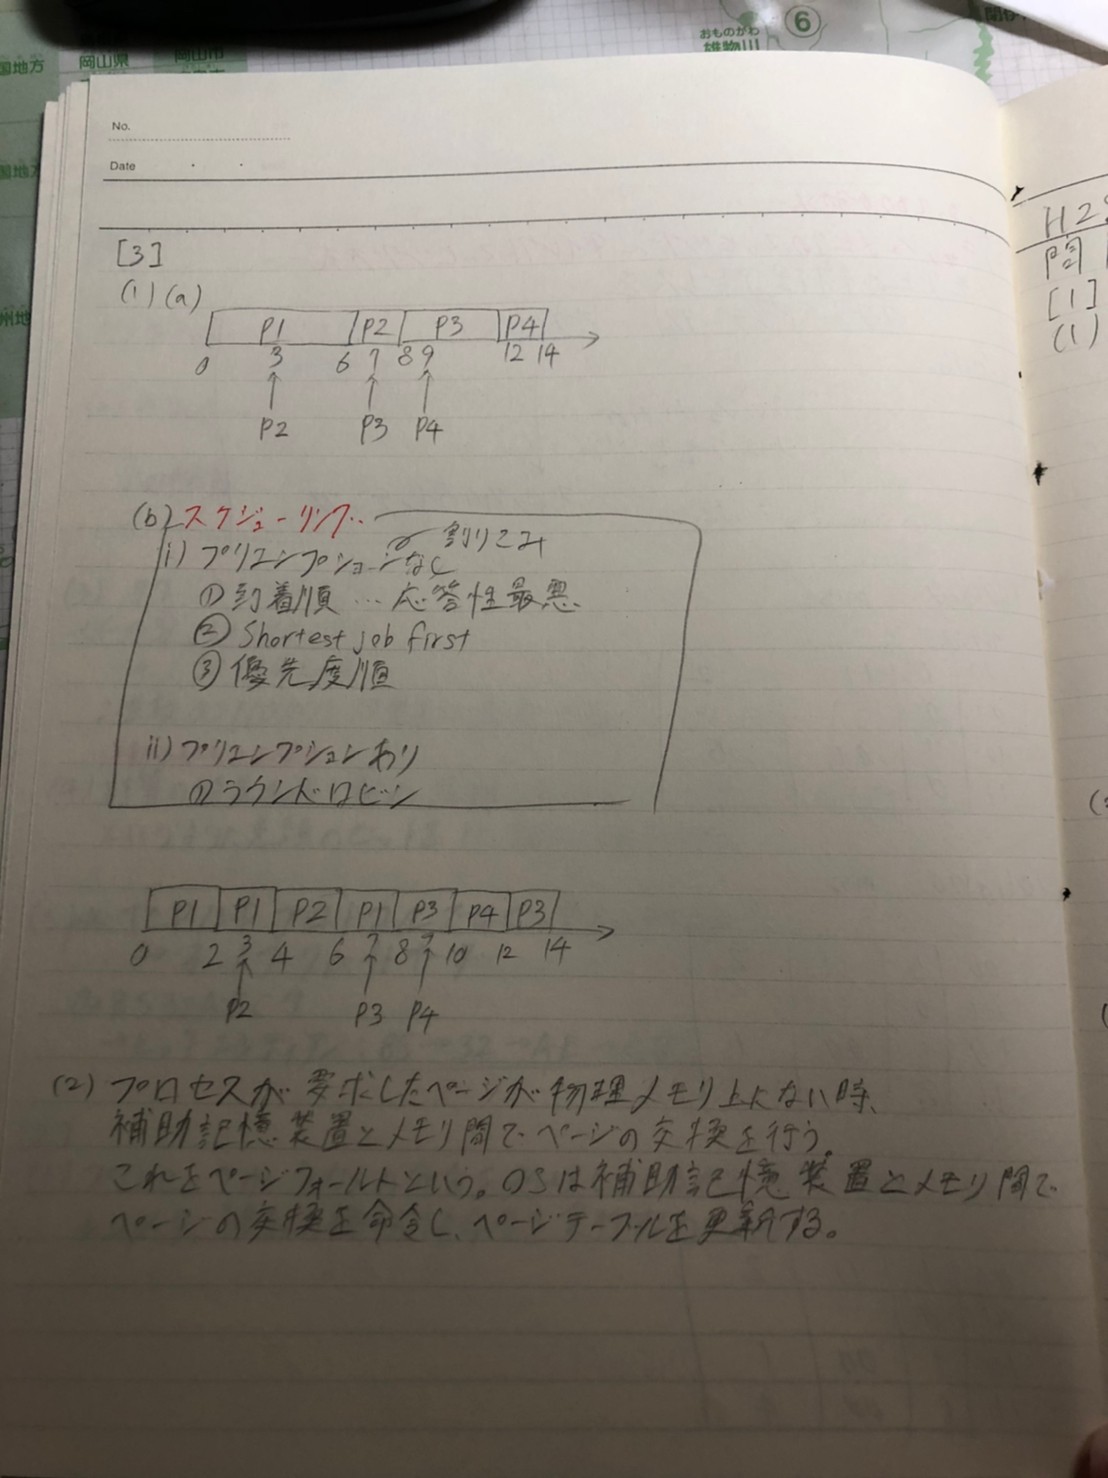 国地方
岡山県
岡山市
おものがわ
雄物川
⑥
No.
Date
[3]
(1)(a)
P1 P2 P3 P4
0 3 6 7 8 9 12 14
P2 P3 P4
(b)スケジューリング..
割りこみ
i) プリエンプションなし
① 到着順 … 応答性最悪
② Shortest job first
③ 優先度順
ii) プリエンプションあり
① ラウンドロビン
P1 P1 P2 P1 P3 P4 P3
0 2 3 4 6 7 8 9 10 12 14
P2 P3 P4
(2) プロセスが要求したページが物理メモリ上にない時、
補助記憶装置とメモリ間でページの交換を行う。
これをページフォールトという。OSは補助記憶装置とメモリ間で
ページの交換を命令し、ページテーブルを更新する。
問
[1]
(1)